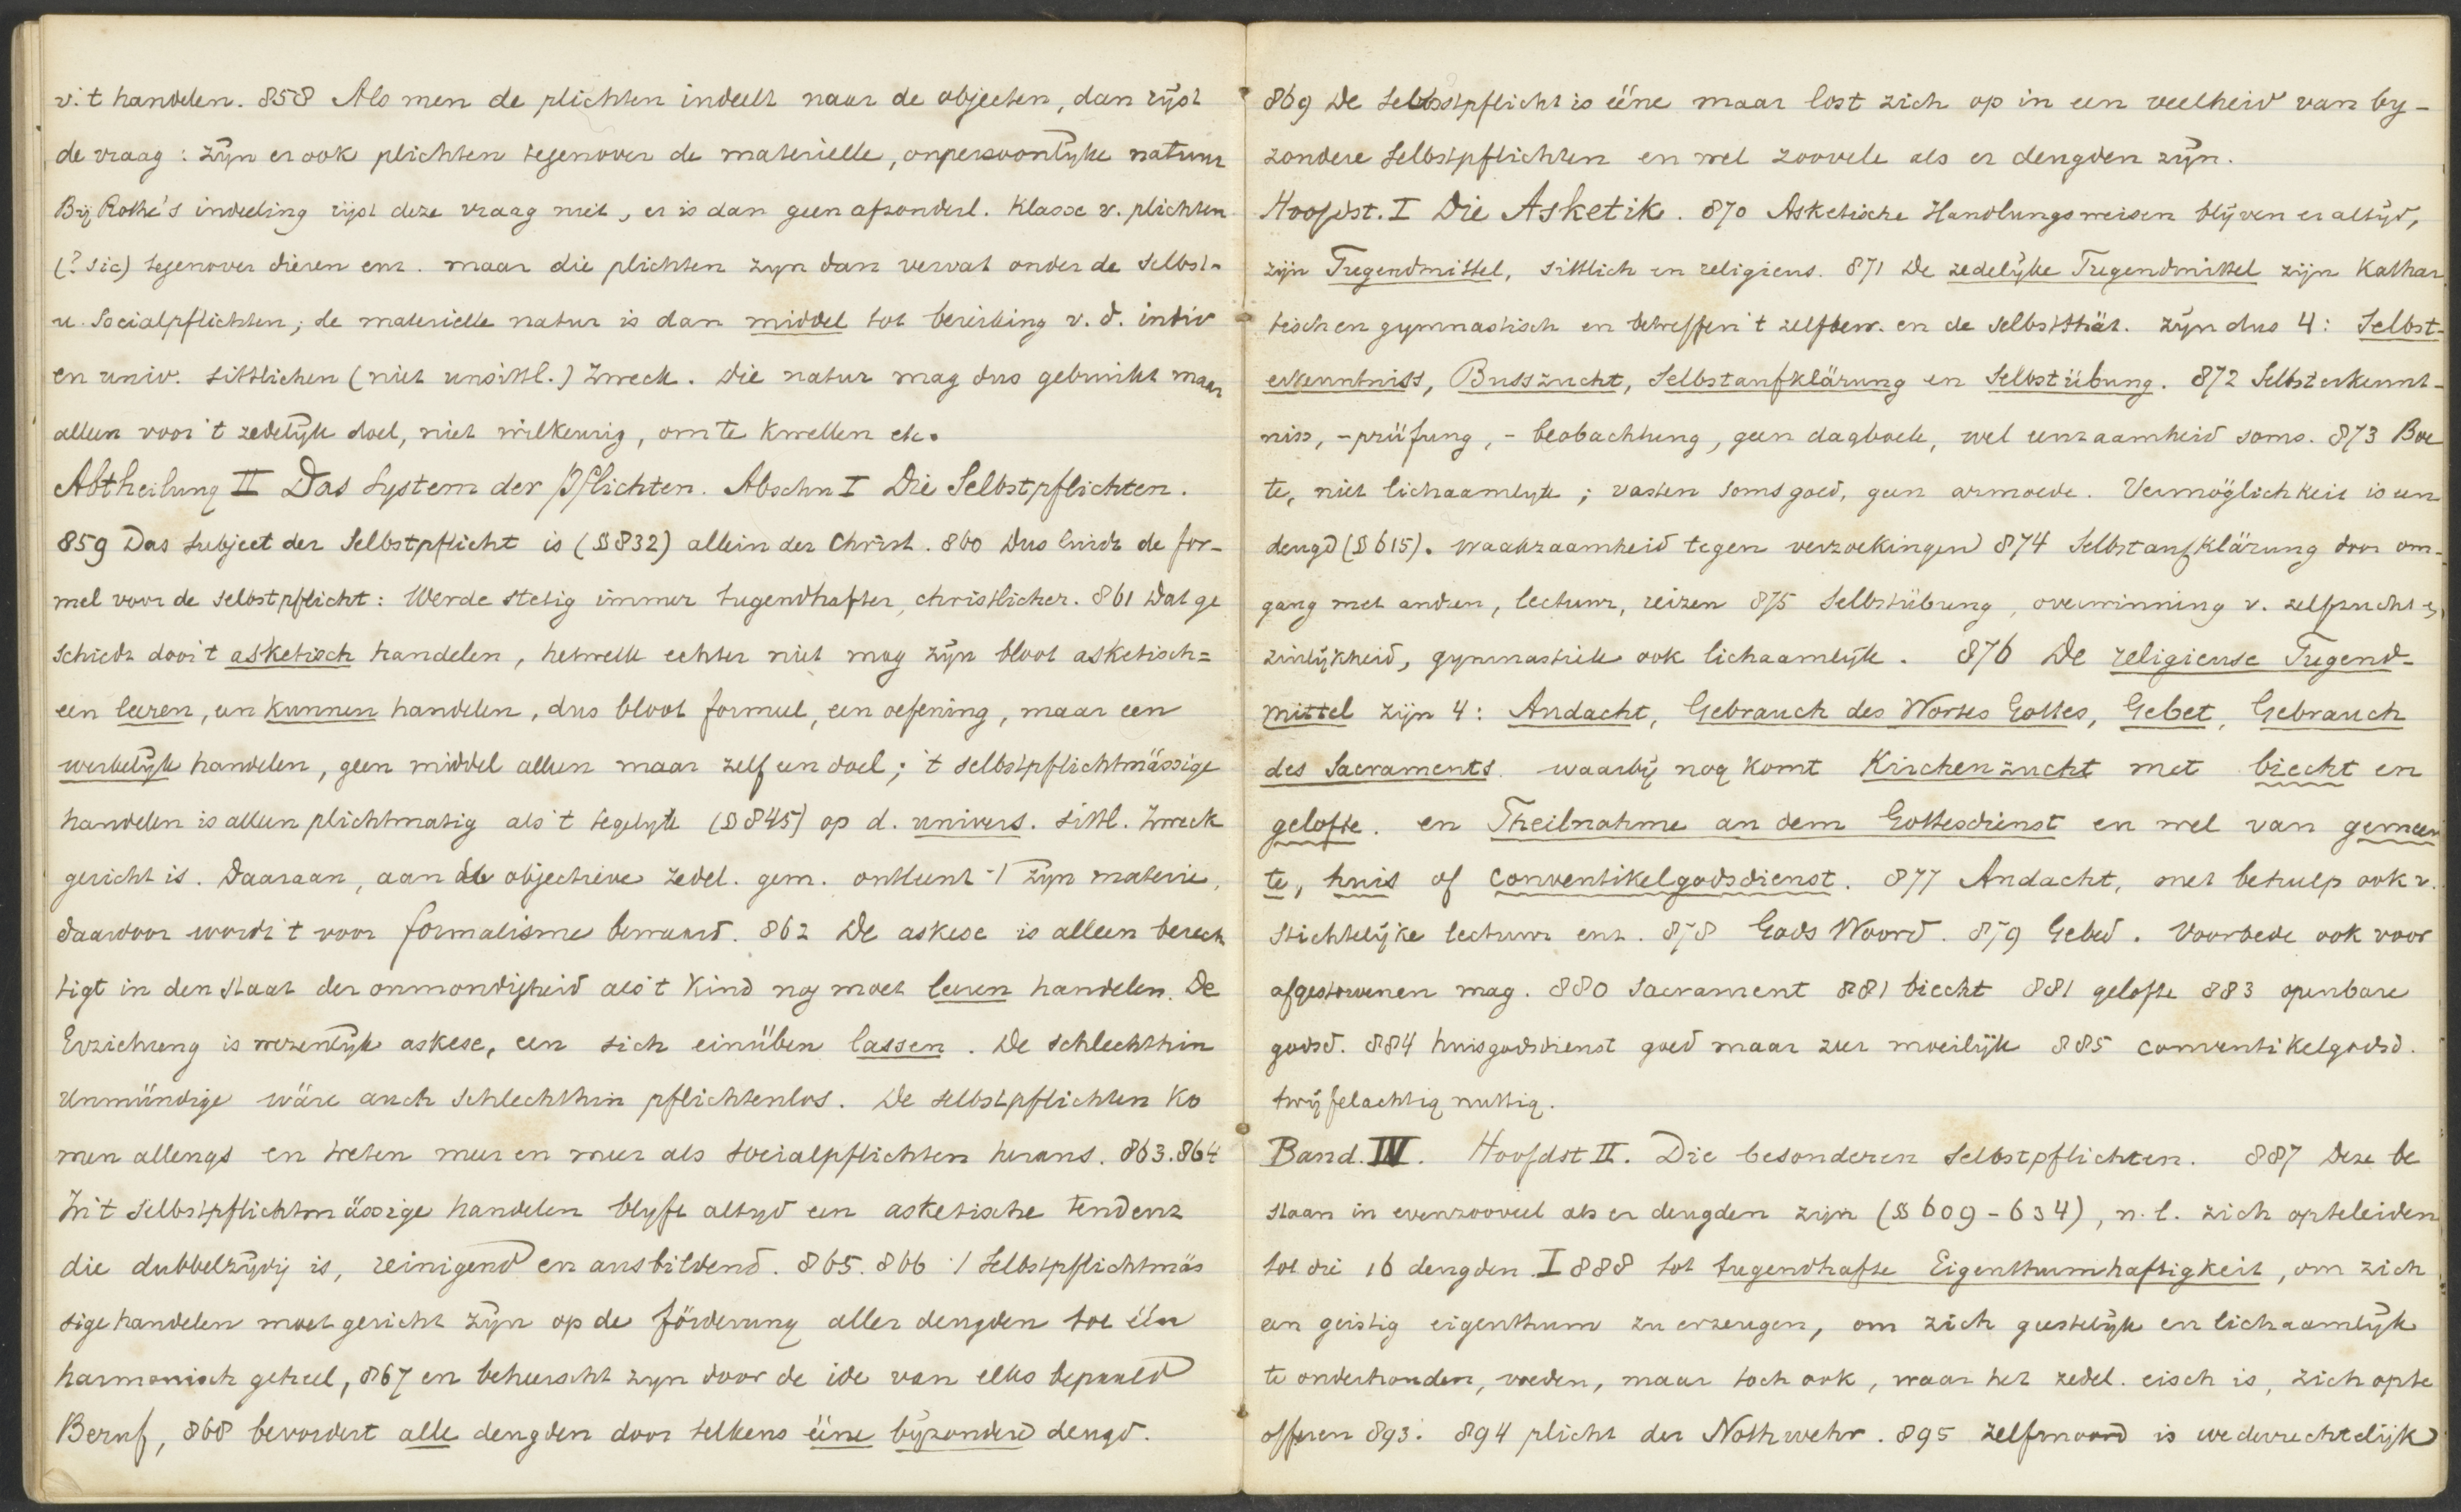 v. 't handelen. 858 Als men de plichten indeelt naar de objecten, dan rijst
de vraag: zijn er ook plichten tegenover de materielle, onpersoonlyke natuur
Bij Rothe's indeeling rijst deze vraag niet, er is dan geen afzonderl. klasse v. plichten
(? sic) tegenover dieren enz. maar die plichten zyn dan vervat onder de Selbst-
u. Socialpflichten; de materielle natur is dan middel tot bereiking v. d. indiv
en univ. sittlichen (niet unsittl.) Zweck. Die natur mag dus gebruikt maar
alleen voor 't zedelijk doel, niet willkeurig, om te kwellen etc.
Abtheilung II Das System der Pflichten. Abschn I Die Selbstpflichten.
859 Das Subject der Selbstpflicht is (§ 832) allein der Christ. 860 Dus luidt de for-
mel voor de Selbstpflicht: Werde stetig immer tugendhafter, christlicher. 861 Dat ge
schiedt door 't asketisch handelen, hetwelk echter niet mag zijn bloot asketisch =
een leeren, en kunnen handelen, dus bloot formeel, een oefening, maar een
werkelijk handelen, geen middel alleen maar zelf een doel; 't selbstpflichtmässige
handelen is alleen plichtmatig als 't tegelyk (§ 845) op d. univers. sittl. Zweck
gericht is. Daaraan, aan de objectieve zedel. gem. ontleent 't zijn materie,
daardoor wordt 't voor formalisme bewaard. 862 De askese is alleen berech
tigt in den staat der onmondigheid als 't kind nog moet leeren handelen. De
Erziehung is wezenlijk askese, een sich einüben lassen. De schlechthin
Unmündige wäre auch schlechthin pflichtenlos. De selbstpflichten ko
men allengs en treten meer en meer als socialpflichten heraus. 863.864
In 't Selbstpflichtmässige handelen blyft altyd een asketische tendenz
die dubbelzijdig is, reinigend en ausbildend. 865. 866 't Selbstpflichtmäs
sige handelen moet gericht zijn op de förderung aller deugden tot één
harmonisch geheel, 867 en beheerscht zyn door de ide van elks bepaald
Beruf, 868 bevordert alle deugden door telkens ééne byzondere deugd.
869 De Selbstpflicht is ééne maar lost zich op in een veelheid van by-
zondere Selbstpflichten en wel zoovele als er deugden zijn.
Hoofdst. I Die Asketik. 870 Asketische Handlungsweisen blijven er altijd,
zijn Tugendmittel, sittlich en religieus. 871 De zedelijke Tugendmittel zijn kathar
tisch en gymnastisch en betreffen 't zelfbew. en de selbstthät. Zijn dus 4: Selbst-
erkenntniss, Busszucht, Selbstaufklärung en Selbstübung. 872 Selbsterkennt-
niss, -prüfung, -beobachtung, geen dagboek, wel eenzaamheid soms. 873 Boe
te, niet lichaamlyk; vasten soms goed, geen armoede. Vermöglichkeit is een
deugd (§ 615). Waakzaamheid tegen verzoekingen 874 Selbstaufklärung door om-
gang met andren, lectuur, reizen 875 Selbstübung, overwinning v. zelfzucht en
zinlijkheid, gymnastiek ook lichaamlijk. 876 De religieuse Tugend-
mittel zijn 4: Andacht, Gebrauch des Wortes Gottes, Gebet, Gebrauch
des Sacraments. waarbij nog komt Kirchenzucht met biecht en
gelofte. en Theilnahme an dem Gottesdienst en wel van gemeen
te, huis of conventikelgodsdienst. 877 Andacht, met behulp ook v.
stichtelijke lectuur enz. 878 Gods Woord. 879 Gebed. Voorbede ook voor
afgestorvenen mag. 880 Sacrament 881 biecht 881 gelofte 883 openbare
godsd. 884 huisgodsdienst goed maar zeer moeilijk 885 conventikelgodsd.
twijfelachtig nuttig.
Band. IV. Hoofdst II. Die besonderen Selbstpflichten. 887 Deze be
staan in evenzooveel als er deugden zijn (§ 609-634), n. l. zich opteleiden
tot die 16 deugden. I 888 tot tugendhafte Eigenthumhaftigkeit, om zich
een geistig eigenthum zu erzeugen, om zich geestelijk en lichaamlijk
te onderhouden, voeden, maar toch ook, waar het zedel. eisch is, zich opte
offeren 893. 894 plicht der Nothwehr. 895 Zelfmoord is wederrechtelijk